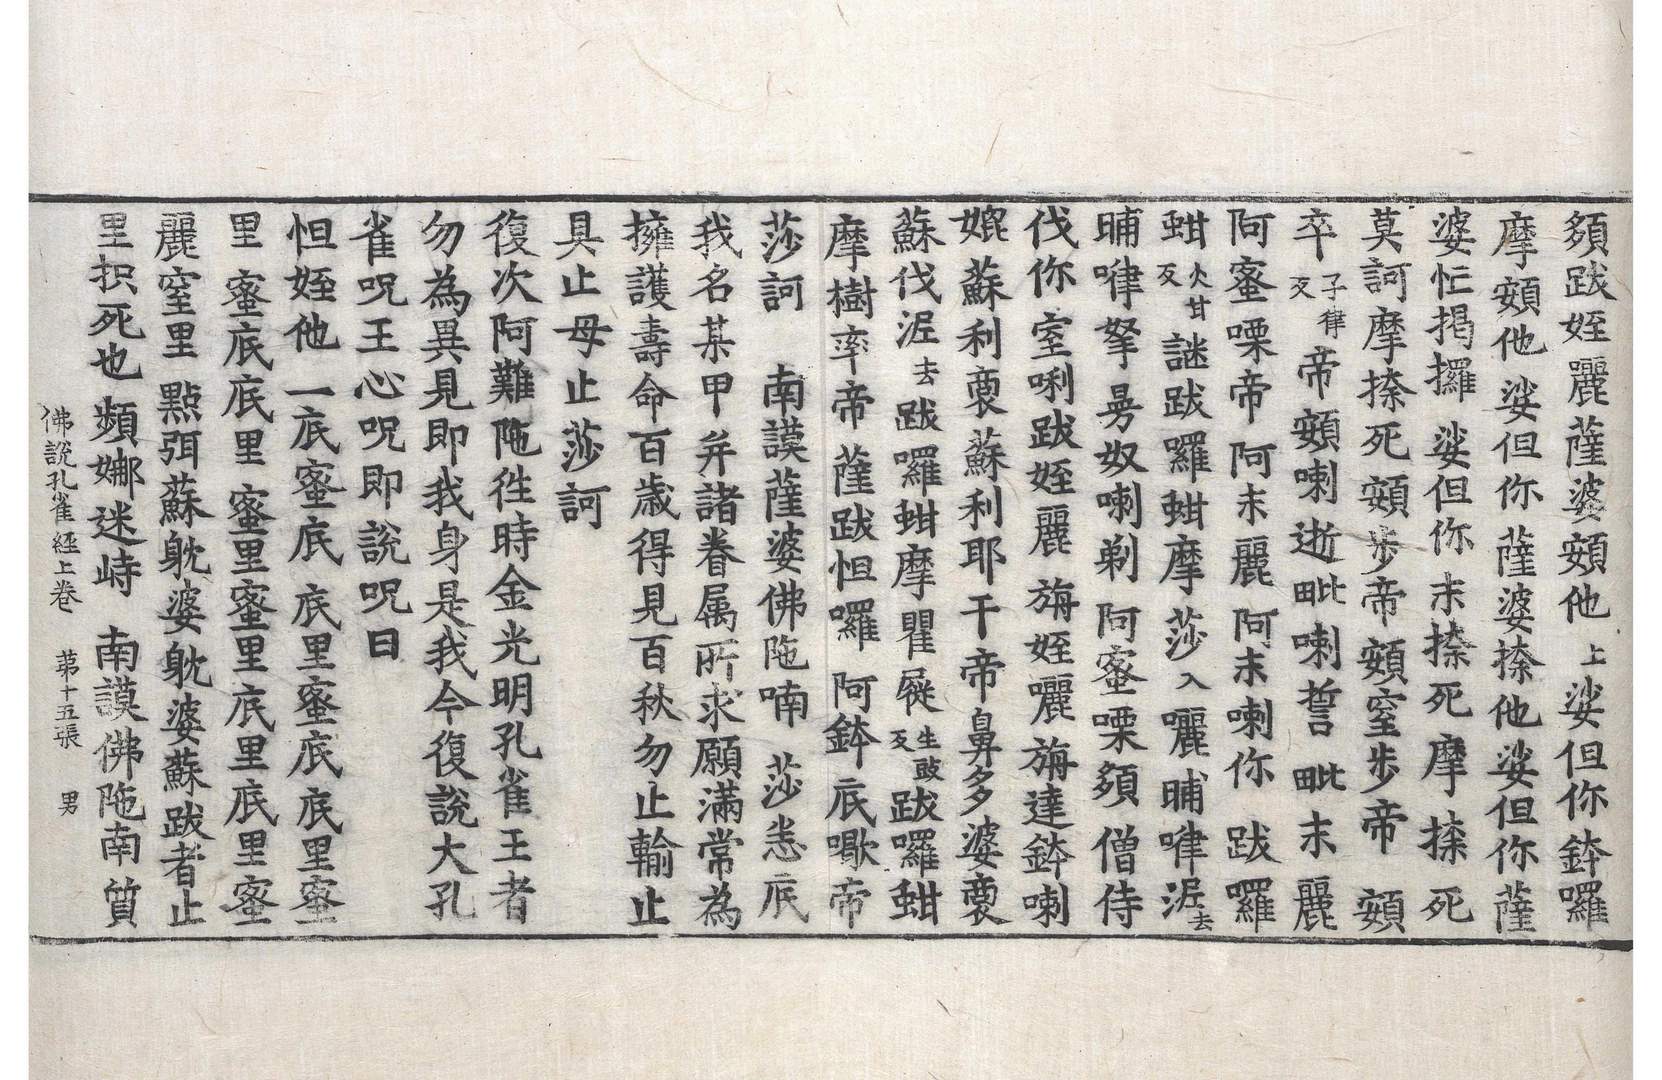 頞跋姪囇薩婆頞他上娑但你鉢囉
摩頞他娑但你薩婆搸他娑但你薩
婆忙揭攞娑但你末搸死摩搸死
莫訶摩搸死頞步帝頞窒步帝頞
卒子律反帝頞喇逝毗喇誓毗末麗
阿蜜㗚帝阿末麗阿末喇你跋囉
蚶火甘反謎跋囉蚶摩莎入囇晡嘽泥去
晡嘽拏曼奴喇剃阿蜜㗚頞僧侍
伐你室唎跋姪麗旃姪囇旃達鉢喇
媲蘇利裔蘇利耶干帝鼻多婆裔
蘇伐泥去跋囉蚶摩瞿屣生豉反跋囉蚶
摩樹率帝薩跋怛囉阿鉢底㘑帝
莎訶　南謨薩婆佛陁喃莎悉底
我名某甲并諸眷属所求願滿常為
擁護壽命百歲得見百秋勿止輸止
具止母止莎訶
復次阿難陁徃時金光明孔雀王者
勿為異見即我身是我今復說大孔
雀呪王心呪即說呪曰
怛姪他一底蜜底底里蜜底底里蜜
里蜜底底里蜜里蜜里底里底里蜜
麗窒里點弭蘇躭婆躭婆蘇跋者止
里抧死也頻娜迷峙南謨佛陁南質
佛說孔雀經上卷　苐十五張　男